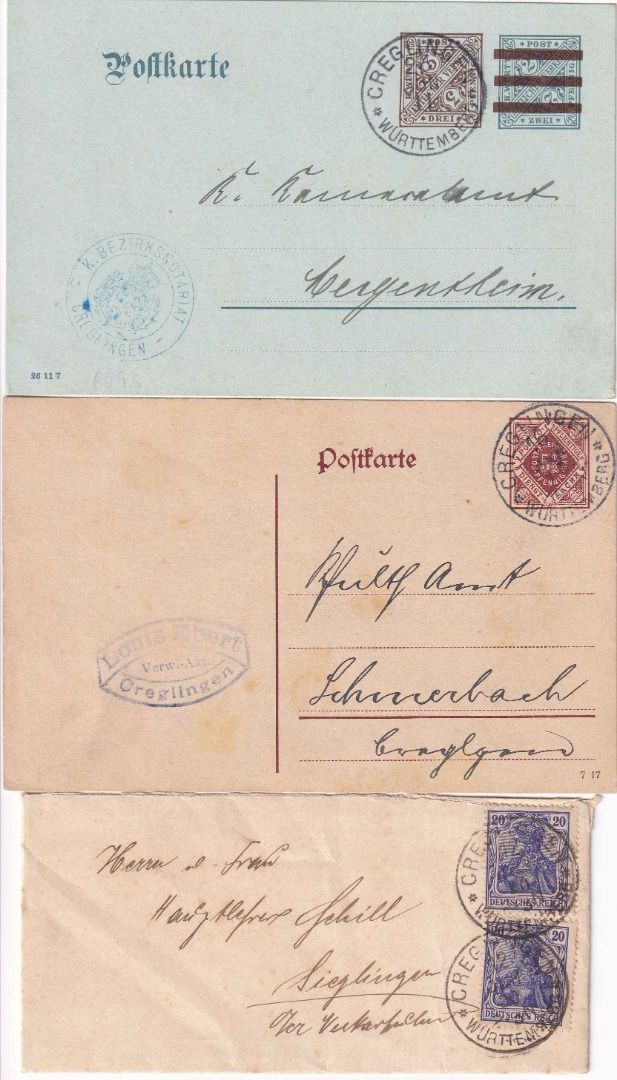 Postkarte
CREGLINGEN
* WÜRTTEMBERG *
DREI
POST
2 2
ZWEI
K. Kameralamt
Mergentheim.
K. BEZIRKSNOTARIAT
CREGLINGEN
26 11 7
Postkarte
CREGLINGEN
* WÜRTTEMBERG *
Amt
Schmerbach
Louis
Verw.-Akt.
Creglingen
7 17
20 20
DEUTSCHES REICH
CREGLINGEN
* WÜRTTEMBERG
Herrn u. Frau
Hauptlehrer Schill
Sieglingen
20
DEUTSCHES REICH
CREGLINGEN
* WÜRTTEMBERG